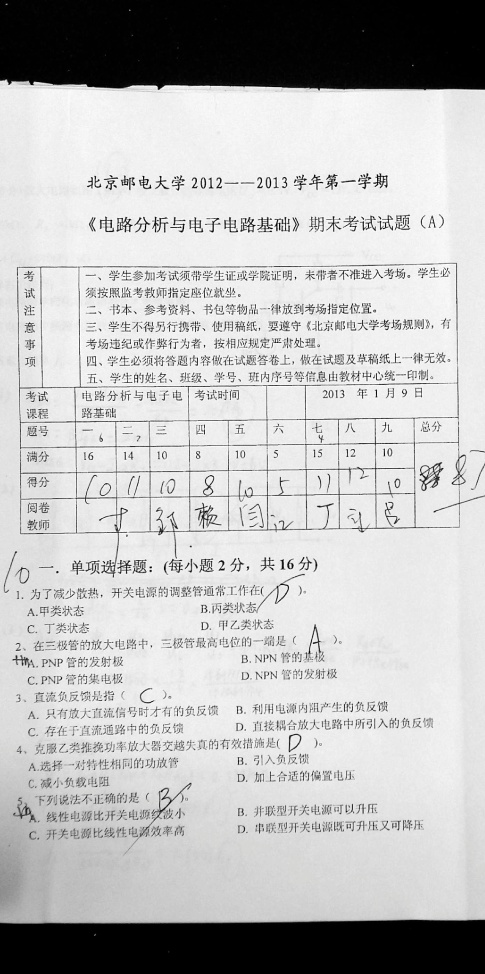 北京邮电大学2012——2013学年第一学期
《电路分析与电子电路基础》期末考试试题（A）
考试注意事项
一、学生参加考试须带学生证或学院证明，未带者不准进入考场。学生必
须按照监考教师指定座位就坐。
二、书本、参考资料、书包等物品一律放到考场指定位置。
三、学生不得另行携带、使用稿纸，要遵守《北京邮电大学考场规则》，有
考场违纪或作弊行为者，按相应规定严肃处理。
四、学生必须将答题内容做在试题答卷上，做在试题及草稿纸上一律无效。
五、学生的姓名、班级、学号、班内序号等信息由教材中心统一印制。
考试 电路分析与电子电 考试时间 2013 年 1 月 9 日
课程 路基础
题号 一 二 三 四 五 六 七 八 九 总分
6 7 4
满分 16 14 10 8 10 5 15 12 10
得分 10 11 10 8 10 5 11 12 10 87
阅卷
教师 丁 吕
10 一．单项选择题：(每小题 2 分，共 16 分)
1. 为了减少散热，开关电源的调整管通常工作在( D )。
A.甲类状态 B.丙类状态
C. 丁类状态 D. 甲乙类状态
2、在三极管的放大电路中，三极管最高电位的一端是（ A ）。
A. PNP 管的发射极 B. NPN 管的基极
C. PNP 管的集电极 D. NPN 管的发射极
3、直流负反馈是指（ C ）。
A. 只有放大直流信号时才有的负反馈 B. 利用电源内阻产生的负反馈
C. 存在于直流通路中的负反馈 D. 直接耦合放大电路中所引入的负反馈
4、克服乙类推挽功率放大器交越失真的有效措施是( D )。
A.选择一对特性相同的功放管 B. 引入负反馈
C. 减小负载电阻 D. 加上合适的偏置电压
5、下列说法不正确的是（ B ）。
A. 线性电源比开关电源纹波小 B. 并联型开关电源可以升压
C. 开关电源比线性电源效率高 D. 串联型开关电源既可升压又可降压